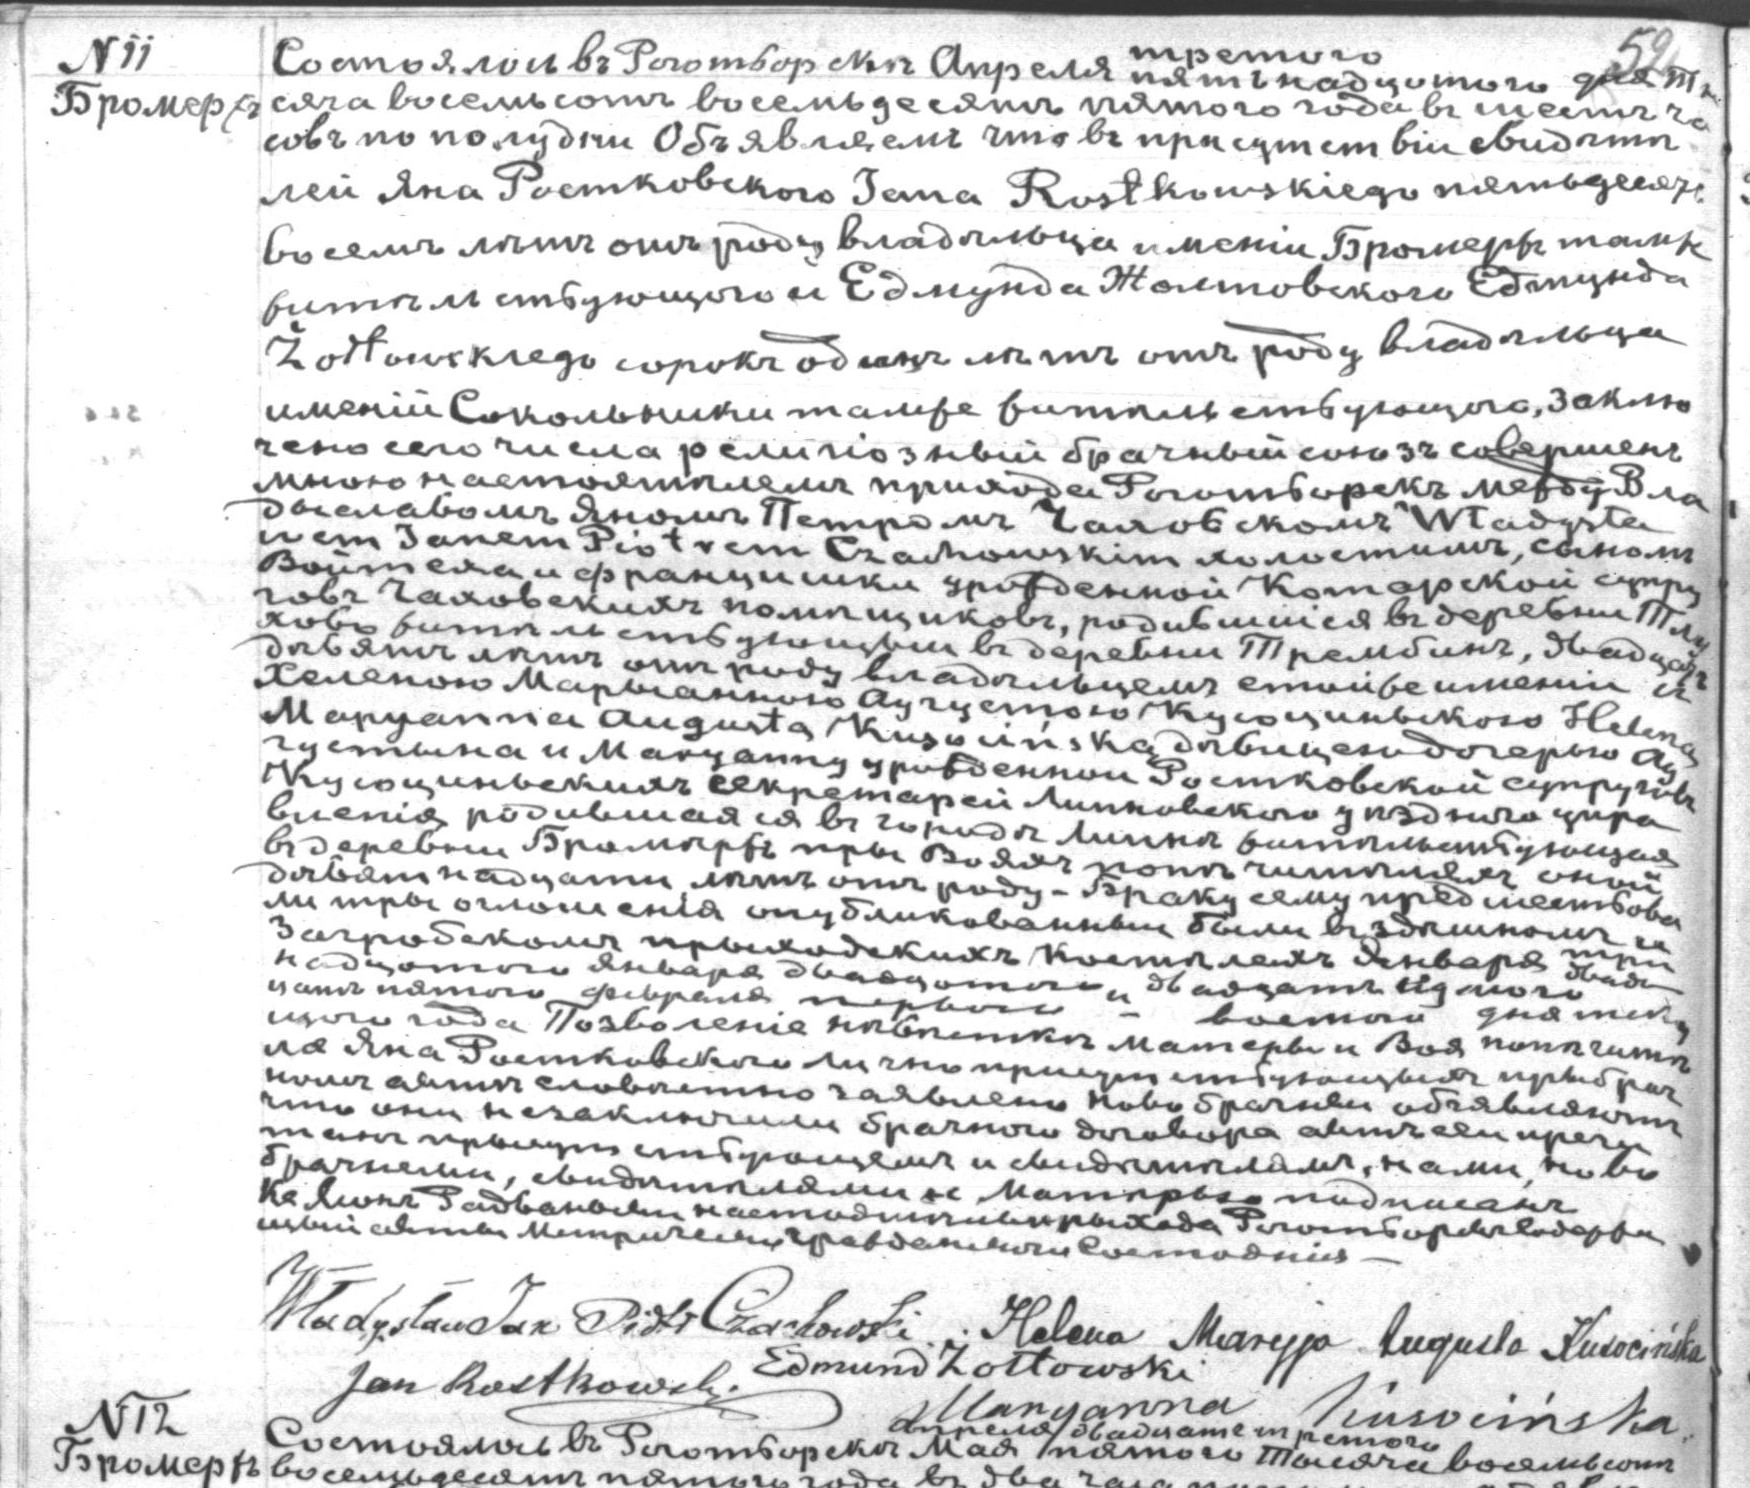 52
N 11
Бромержъ
Состоялось въ Роготворскѣ Апреля третого
пятьнадцотого дня Ты
сяча восемьсотъ восемьдесятъ пятого года въ шесть ча
совъ по полудни Объявляемъ что въ присутствіи свидѣтѣ
лей Яна Ростковского Jana Rostkowskiego пятьдесятъ
восемъ лѣтъ отъ роду владѣльца имѣніи Бромержъ тамже
жительствующого и Едмунда Жолтовского Edmunda
Żółtowskiego сорокъ одинъ лѣтъ отъ роду владѣльца
имѣній Сокольники тамже жительствующого, заклю
чено сего числа религіозный брачный союзъ совершенъ
мною настоятелемъ прихода Роготворскъ между Вла
дыславомъ Яномъ Петромъ Чаховскомъ Władysła
wem Janem Piotrem Czachowskim холостымъ, сыномъ
Войтеха и Францишки урожденной Комарской супру
говъ Чаховскихъ помѣщиковъ, родившійся въ деревни
хово жительствующый въ деревни Трембинъ, двадцать
девять лѣтъ отъ роду владѣльцемъ имѣніи и
Хеленою Марыанною Аугустою Кусоциньскою Helena
Maryanna Augusta Kusocińską дѣвицею дочерью Ау
густына и Марианны урожденной Ростковской супруговъ
Кусоциньскихъ секретарей Липновского уѣздного упра
вленія родившаяся въ городѣ Липнѣ жительствующая
въ деревни Бромержъ при Воляхъ попечителяхъ оной
девятнадцати лѣтъ отъ роду - Браку сему предшествова
ли три оглошенія опубликованныи были въ здѣшномъ и
Загробскомъ приходскихъ костелахъ Января три
надцотого Января двадцотого и двадцать
цать пятого Февраля первого и восмого дня теку
щого года Позволеніе невѣстки матеры и Воя попечите
ля Яна Ростковского лично присутствующыхъ при брач
номъ актѣ словесно заявлено Новобрачныи объявляютъ
что они незаключили брачного договора актъ сей прочи
танъ присутствующемъ и свидѣтелямъ, нами, ново
брачнеми, свидѣтелями и Матерью подписанъ
настоятель прихода Роготворскъ содержа
щый акты Метрическіи гражданского Состоянія —
Władysław Jan Piotr Czachowski . Helena Maryja Augusta Kusocińska
Jan Rostkowski. Edmund Żółtowski
Maryanna Kusocińska.
N 12
Бромержъ
Апреля двадцать третого
Состоялось въ Роготворскѣ Мая пятого Тысяча восемьсотъ
восемьдесятъ пятого года въ два часа